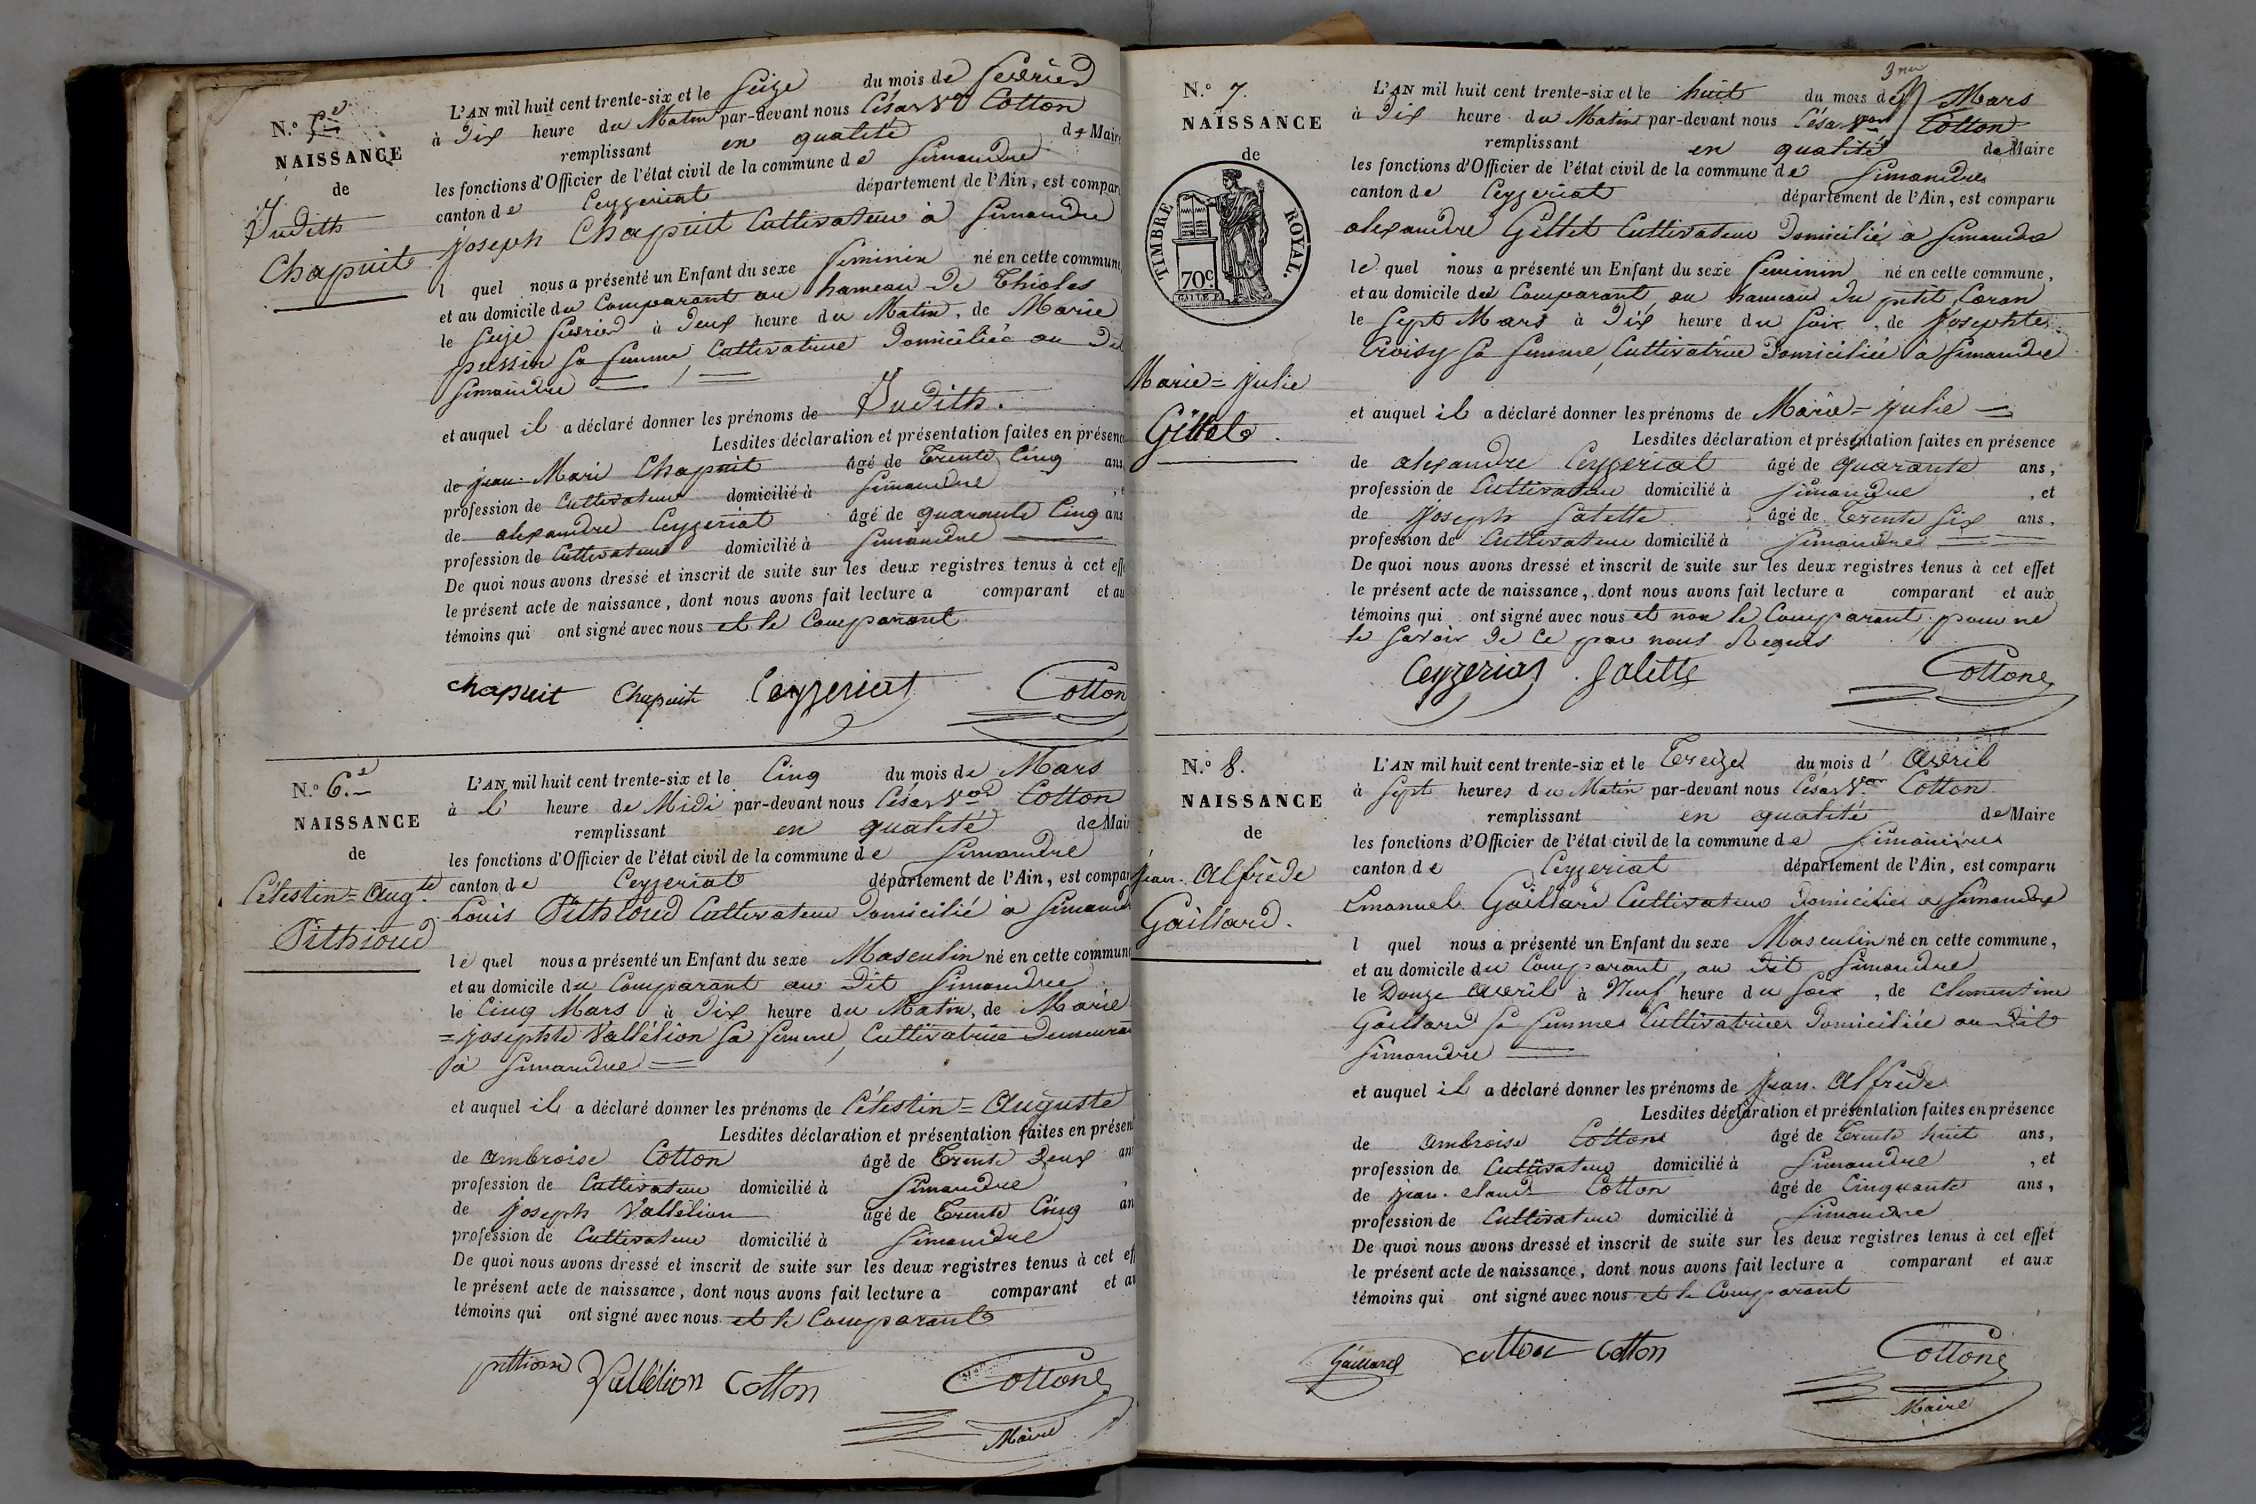 N.º 5.e
NAISSANCE
de
Judith
Chapuit
L'AN mil huit cent trente-six et le Seize du mois de fevrier
à Dix heure du Matin par-devant nous César Vor Cotton
remplissant en qualité de Maire
les fonctions d'Officier de l'état civil de la commune de Simandre
canton de Ceyzeriat département de l'Ain, est compar
joseph Chapuit Cultivateur à Simandre
l quel nous a présenté un Enfant du sexe feminin né en cette commune,
et au domicile du Comparant au hameau de Thioles
le Seize fevrier à Deux heure du Matin, de Marie
sa femme, Cultivatrice Domiciliée au Dit
Simandre
et auquel il a déclaré donner les prénoms de Judith.
Lesdites déclaration et présentation faites en présenc
de jean Mari Chapuit âgé de Trente Cinq ans
profession de Cultivateur domicilié à Simandre
de alexandre Ceyzeriat âgé de quarante Cinq ans
profession de Cultivateur domicilié à Simandre
De quoi nous avons dressé et inscrit de suite sur les deux registres tenus à cet eff
le présent acte de naissance, dont nous avons fait lecture a comparant et au
témoins qui ont signé avec nous et le Comparant
chapuit Chapuit Ceyzeriat Cotton
N.º 6.e
NAISSANCE
de
Célestin=Aug.te
Pithioud
L'AN mil huit cent trente-six et le Cinq du mois de Mars
à l' heure de Midi par-devant nous César Vor Cotton
remplissant en qualité de Mair
les fonctions d'Officier de l'état civil de la commune de Simandre
canton de Ceyzeriat département de l'Ain, est compar
Louis Pithioud Cultivateur Domicilié à Simandr
le quel nous a présenté un Enfant du sexe Masculin né en cette commun
et au domicile du Comparant au Dit Simandre
le Cinq Mars à Dix heure du Matin, de Marie
=josephte Vallélion sa femme, Cultivatrice Demeuran
à Simandre
et auquel il a déclaré donner les prénoms de Célestin=Auguste
Lesdites déclaration et présentation faites en présen
de ambroise Cotton âgé de Trente Deux an
profession de Cultivateur domicilié à Simandre
de joseph Vallélion âgé de Trente Cinq an
profession de Cultivateur domicilié à Simandre
De quoi nous avons dressé et inscrit de suite sur les deux registres tenus à cet eff
le présent acte de naissance, dont nous avons fait lecture a comparant et au
témoins qui ont signé avec nous et le Comparant
Vallélion Cotton Cotton
Maire
N.º 7.
NAISSANCE
de
TIMBRE ROYAL.
70c
Marie=Julie
Gillet.
L'AN mil huit cent trente-six et le huit du mois de Mars
à Dix heure du Matin par-devant nous César Vor Cotton
remplissant en qualité de Maire
les fonctions d'Officier de l'état civil de la commune de Simandre
canton de Ceyzeriat département de l'Ain, est comparu
alexandre Gillet Cultivateur Domicilié à Simandre
le quel nous a présenté un Enfant du sexe feminin né en cette commune,
et au domicile du Comparant, au hameau du petit Coran
le Sept Mars à Dix heure du soir, de Josephte
Croisy sa femme, Cultivatrice Domiciliée à Simandre
et auquel il a déclaré donner les prénoms de Marie=Julie
Lesdites déclaration et présentation faites en présence
de alexandre Ceyzeriat âgé de quarante ans,
profession de Cultivateur domicilié à Simandre, et
de Joseph Salette âgé de Trente Six ans.
profession de Cultivateur domicilié à Simandre
De quoi nous avons dressé et inscrit de suite sur les deux registres tenus à cet effet
le présent acte de naissance, dont nous avons fait lecture a comparant et aux
témoins qui ont signé avec nous et non le Comparant pour ne
le savoir De Ce par nous Requis
Ceyzeriat Salette Cotton
N.º 8.
NAISSANCE
de
Jean. Alfrède
Gaillard.
L'AN mil huit cent trente-six et le Treize du mois d' Avril
à Sept heures du Matin par-devant nous César Vor Cotton
remplissant en qualité de Maire
les fonctions d'Officier de l'état civil de la commune de Simandre
canton de Ceyzeriat département de l'Ain, est comparu
Emanuel Gaillard Cultivateur Domicilié à Simandre
l quel nous a présenté un Enfant du sexe Masculin né en cette commune,
et au domicile du Comparant, au Dit Simandre
le Douze Avril à Neuf heure du soir, de Clementine
Gaillard sa femme Cultivatrice Domiciliée au Dit
Simandre
et auquel il a déclaré donner les prénoms de Jean. Alfrède
Lesdites déclaration et présentation faites en présence
de ambroise Cotton âgé de Trente huit ans,
profession de Cultivateur domicilié à Simandre, et
de jean. claude Cotton âgé de Cinquante ans,
profession de Cultivateur domicilié à Simandre
De quoi nous avons dressé et inscrit de suite sur les deux registres tenus à cet effet
le présent acte de naissance, dont nous avons fait lecture a comparant et aux
témoins qui ont signé avec nous et le Comparant
Gaillard Cotton Cotton Cotton
Maire